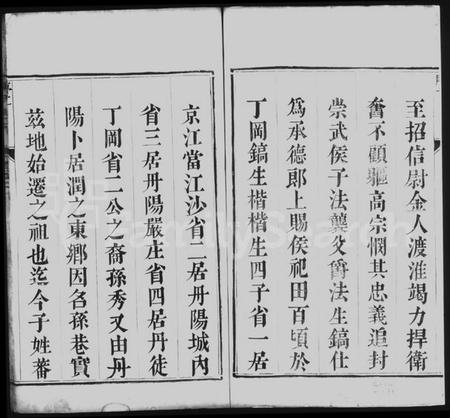 至招信尉金人渡淮竭力捍衛
奮不顧軀高宗憫其忠義追封
崇武侯子法龔父爵法生鎬仕
為承德郎上賜侯祀田百頃於
丁岡鎬生楷楷生四子省一居
京江當江沙省二居丹陽城內
省三居丹陽嚴庄省四居丹徒
丁岡省二公之裔孫秀又由丹
陽卜居潤之東鄉因名孫巷實
茲地始遷之祖也迄今子姓蕃
FamilySearch